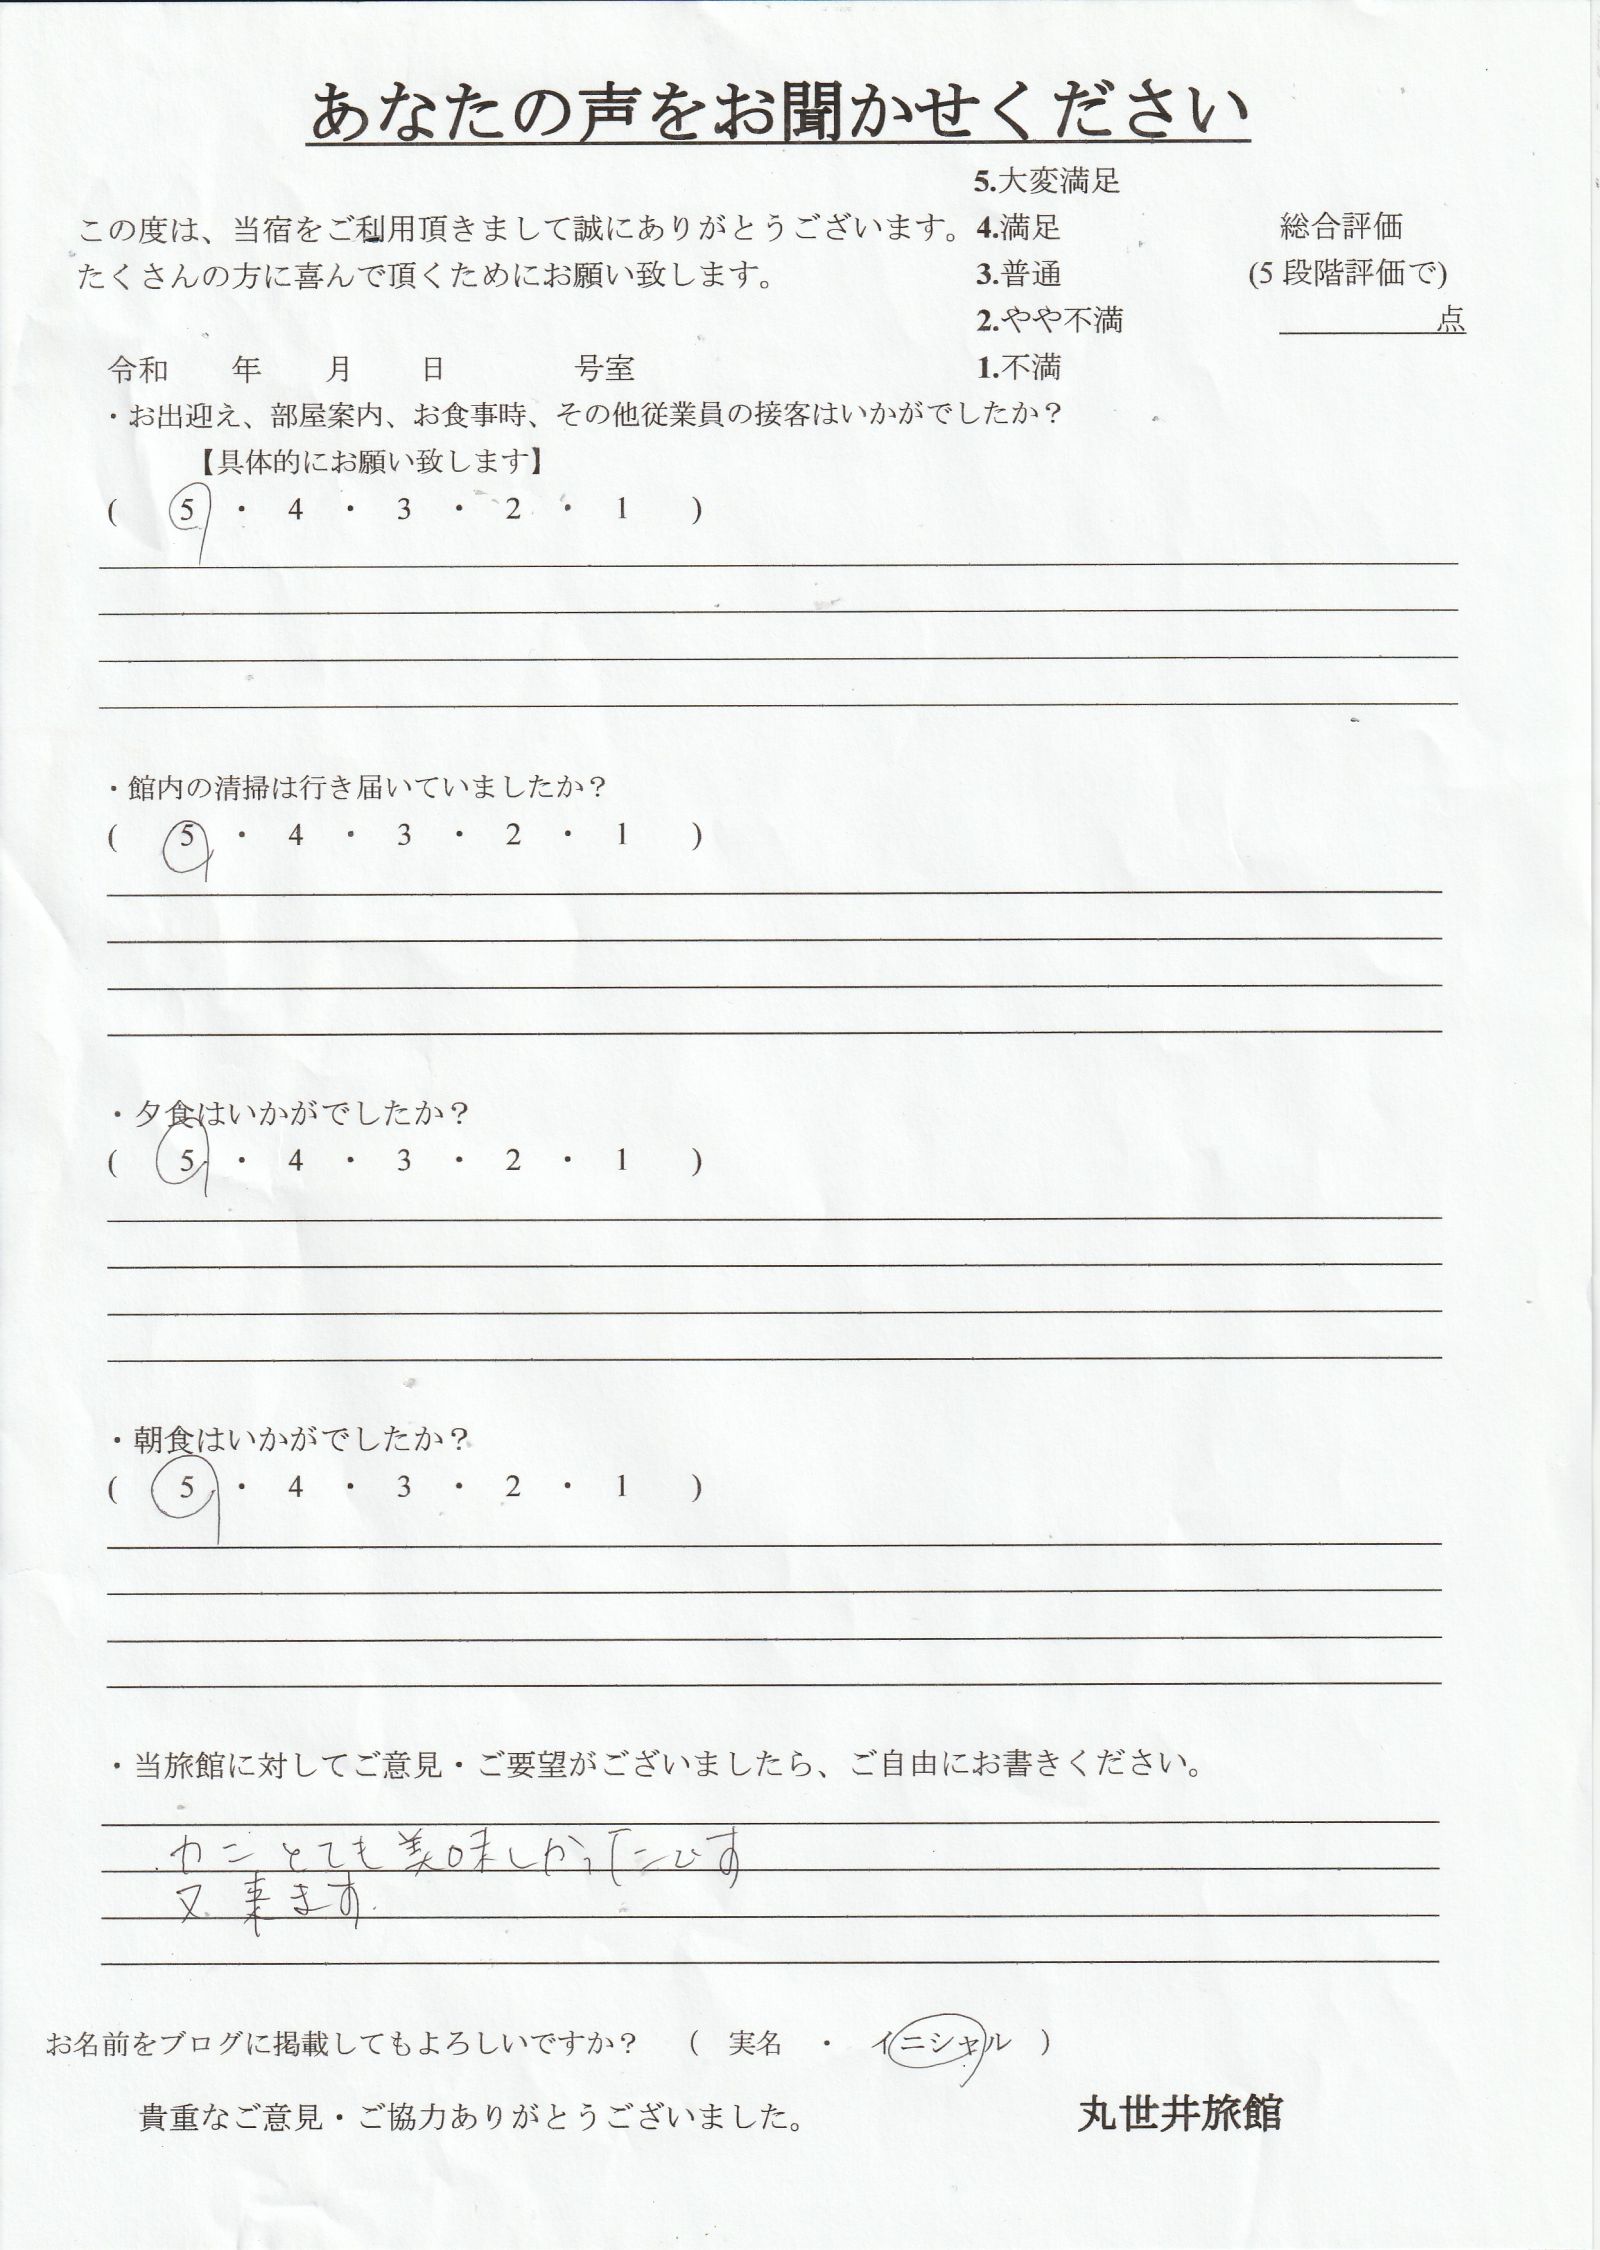 あなたの声をお聞かせください
5.大変満足
この度は、当宿をご利用頂きまして誠にありがとうございます。 4.満足 総合評価
たくさんの方に喜んで頂くためにお願い致します。 3.普通 (5 段階評価で)
2.やや不満 点
令和 年 月 日 号室 1.不満
・お出迎え、部屋案内、お食事時、その他従業員の接客はいかがでしたか？
【具体的にお願い致します】
( 5 ・ 4 ・ 3 ・ 2 ・ 1 )
・館内の清掃は行き届いていましたか？
( 5 ・ 4 ・ 3 ・ 2 ・ 1 )
・夕食はいかがでしたか？
( 5 ・ 4 ・ 3 ・ 2 ・ 1 )
・朝食はいかがでしたか？
( 5 ・ 4 ・ 3 ・ 2 ・ 1 )
・当旅館に対してご意見・ご要望がございましたら、ご自由にお書きください。
カニ とても美味しかったです
又 来ます.
お名前をブログに掲載してもよろしいですか？ ( 実名 ・ イニシャル )
貴重なご意見・ご協力ありがとうございました。 丸世井旅館